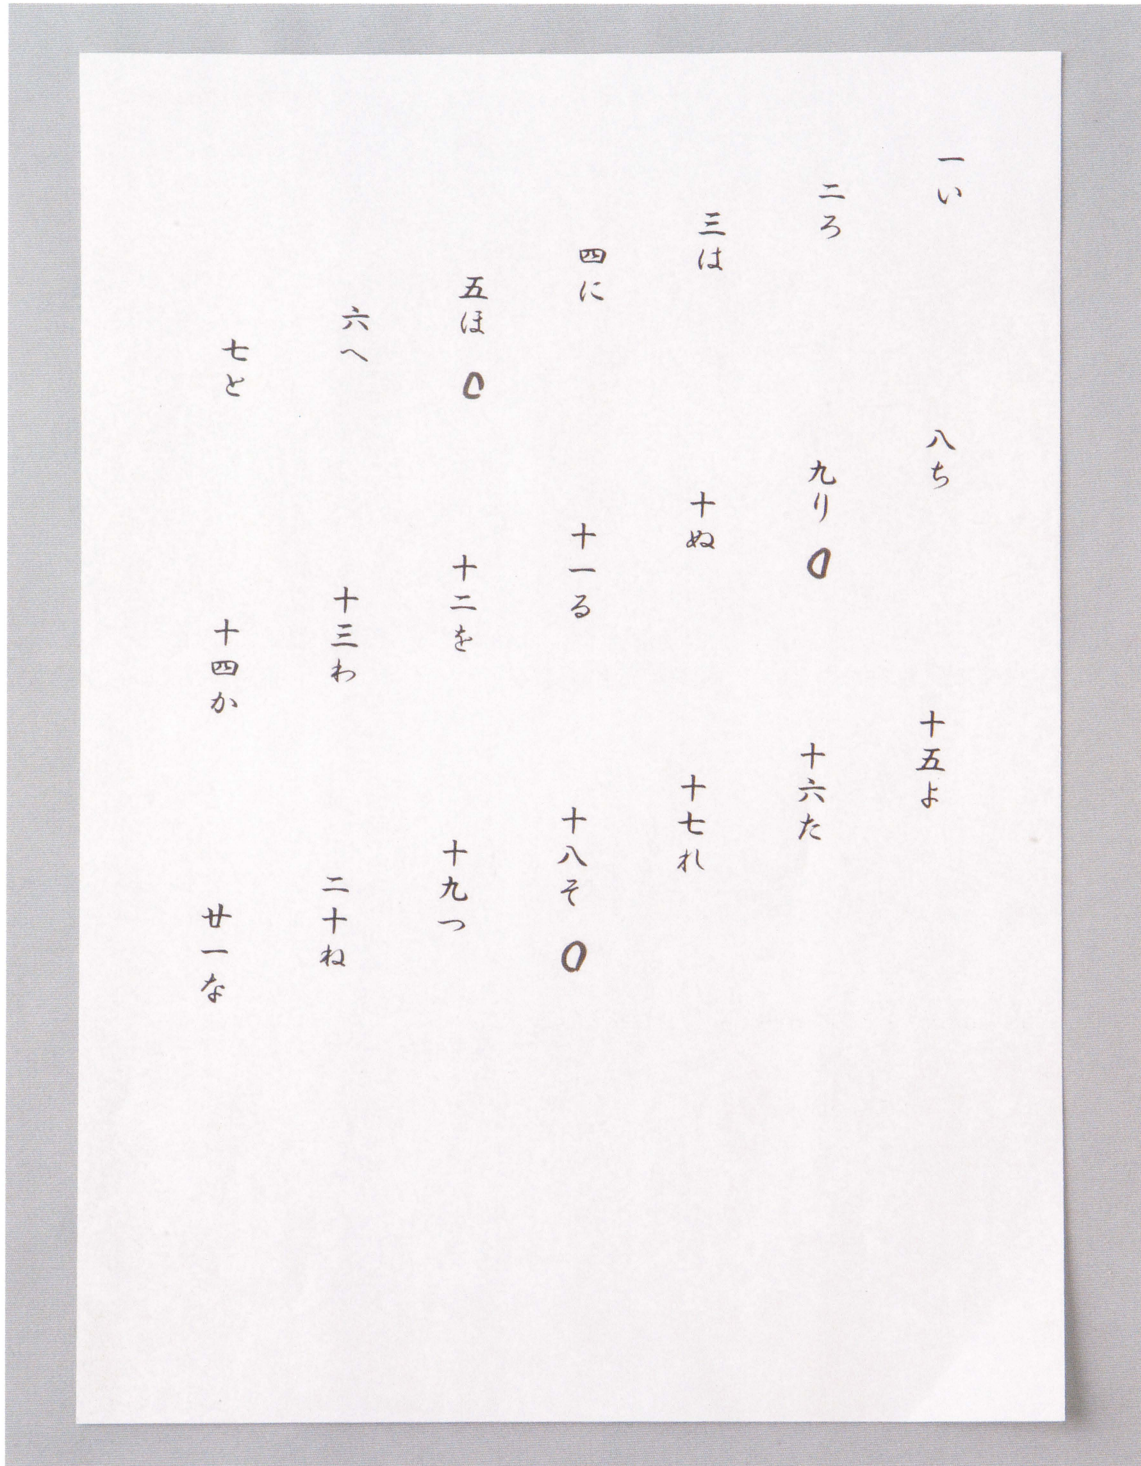 一い
二ろ
三は
四に
五ほ 〇
六へ
七と
八ち
九り 〇
十ぬ
十一る
十二を
十三わ
十四か
十五よ
十六た
十七れ
十八そ 〇
十九つ
二十ね
廿一な